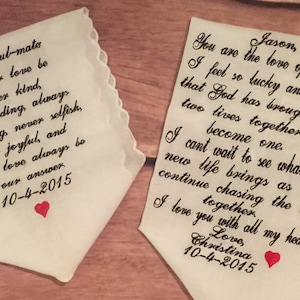 ul-mate
r love be
r kind,
ding, always
g, never selfish,
joyful, and
love always be
our answer.
10-4-2015
Jason,
You are the love of
I feel so lucky an
that God has broug
two lives together
become one.
I cant wait to see wha
new life brings as
continue chasing the
together.
I love you with all my hea
Love,
Christina
10-4-2015